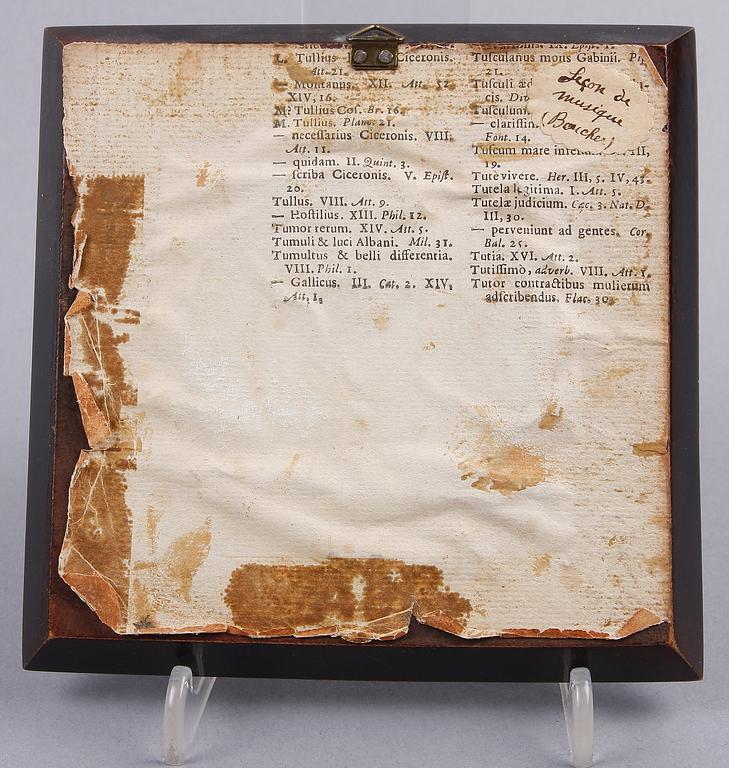 L. Tullius Ciceronis.
Att. 21.
— Montanus. XII. Att. 52
XIV, 16.
M. Tullius Cos. Br. 16.
M. Tullius. Planc. 21.
— necessarius Ciceronis. VIII.
Att. 11.
— quidam. II. Quint. 3.
— scriba Ciceronis. V. Epist.
20.
Tullus. VIII. Att. 9.
— Hostilius. XIII. Phil. 12.
Tumor rerum. XIV. Att. 5.
Tumuli & luci Albani. Mil. 31.
Tumultus & belli differentia.
VIII. Phil. 1.
— Gallicus. III. Cat. 2. XIV,
Att. 1.
Tusculanus mons Gabinii.
21.
Tusculi
cis.
Tusculum
— clarissim
Font. 14.
Tuscum mare II,
19.
Tute vivere. Her. III, 5. IV, 43.
Tutela legitima. I. Att. 5.
Tutelæ judicium. Cæc. 3. Nat. D.
III, 30.
— perveniunt ad gentes. Cor.
Bal. 25.
Tutia. XVI. Att. 2.
Tutissimo, adverb. VIII. Att. 1.
Tutor contractibus mulierum
adscribendus. Flac. 30
Leçon de
musique
(Boucher)